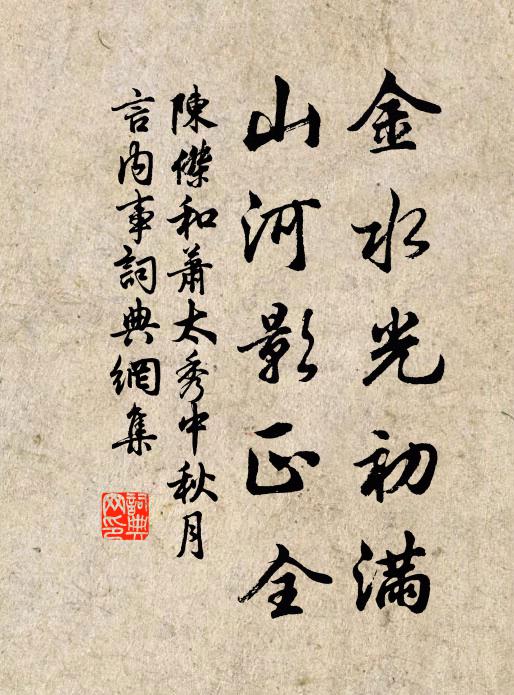 金水光初滿
山河影正全
陳傑和蕭太秀中秋月
言內事詞典網集
詞典网印